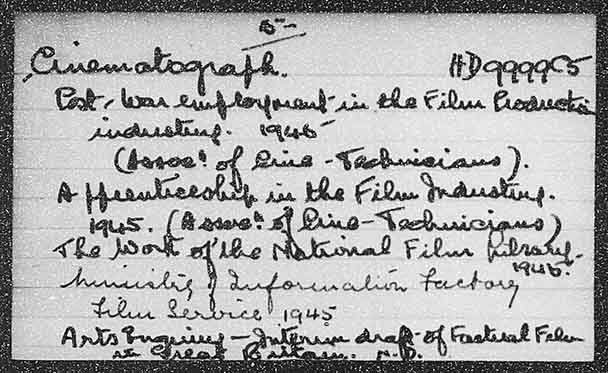 5-
Cinematograph. HD9999C5
Post-War employment in the Film Production
industry. 1945
(Assocn. of Cine-Technicians).
Apprenticeship in the Film Industry.
1945. (Assocn. of Cine-Technicians)
The Work of the National Film Library.
1945.
Ministry of Information Factory
Film Service 1945
Arts Enquiry - Interim draft of Factual Film
in Great Britain. N.D.